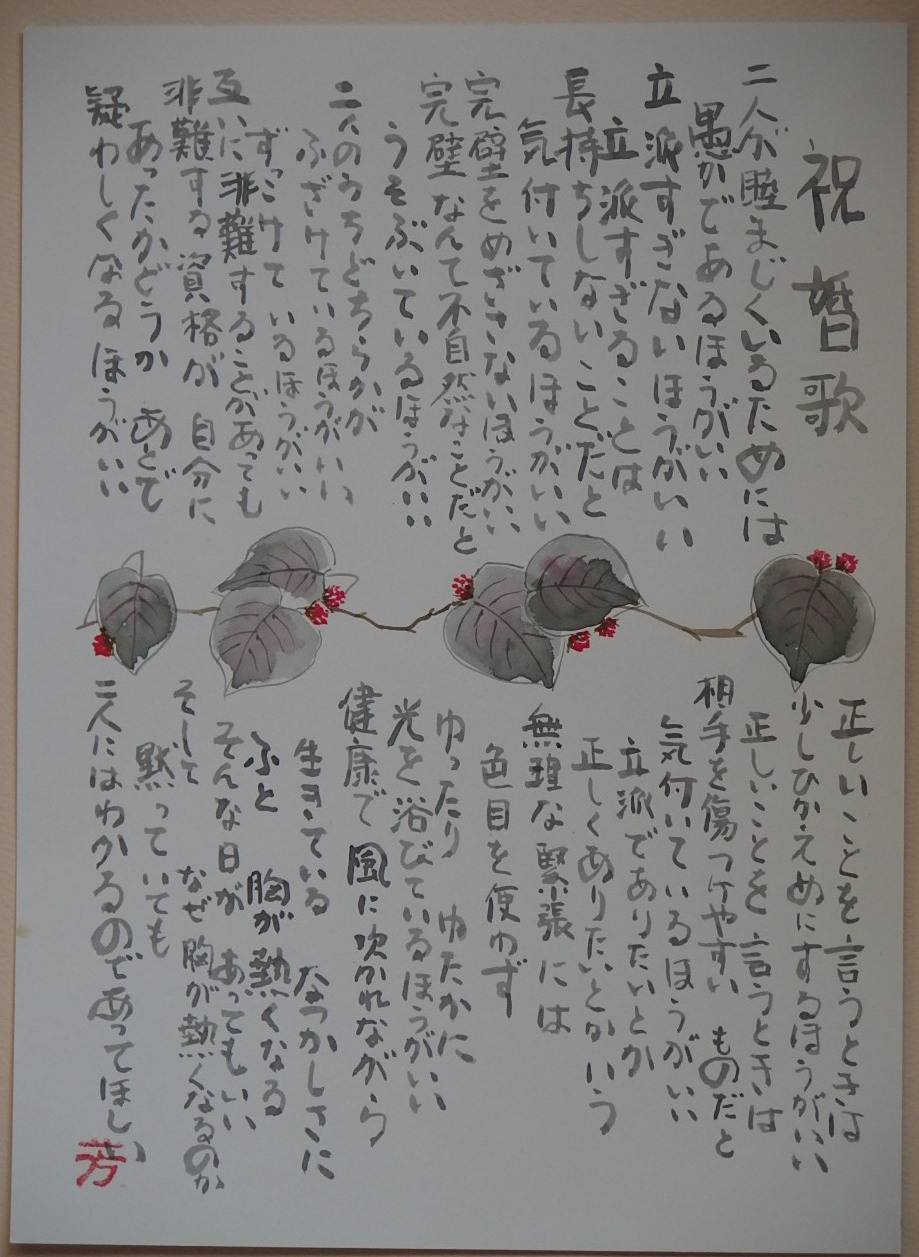 祝婚歌
二人が睦まじくいるためには
愚かであるほうがいい
立派すぎないほうがいい
立派すぎることは
長持ちしないことだと
気付いているほうがいい
完璧をめざさないほうがいい
完璧なんて不自然なことだと
うそぶいているほうがいい
二人のうちどちらかが
ふざけているほうがいい
ずっこけているほうがいい
互いに非難することがあっても
非難する資格が自分に
あったかどうか あとで
疑わしくなるほうがいい
正しいことを言うときは
少しひかえめにするほうがいい
正しいことを言うときは
相手を傷つけやすい ものだと
気付いているほうがいい
立派でありたいとか
正しくありたいとかいう
無理な緊張には
色目を使わず
ゆったり ゆたかに
光を浴びているほうがいい
健康で 風に吹かれながら
生きている なつかしさに
ふと 胸が熱くなる
そんな日が あってもいい
そして なぜ胸が熱くなるのか
黙っていても
二人にはわかるのであってほしい
芳